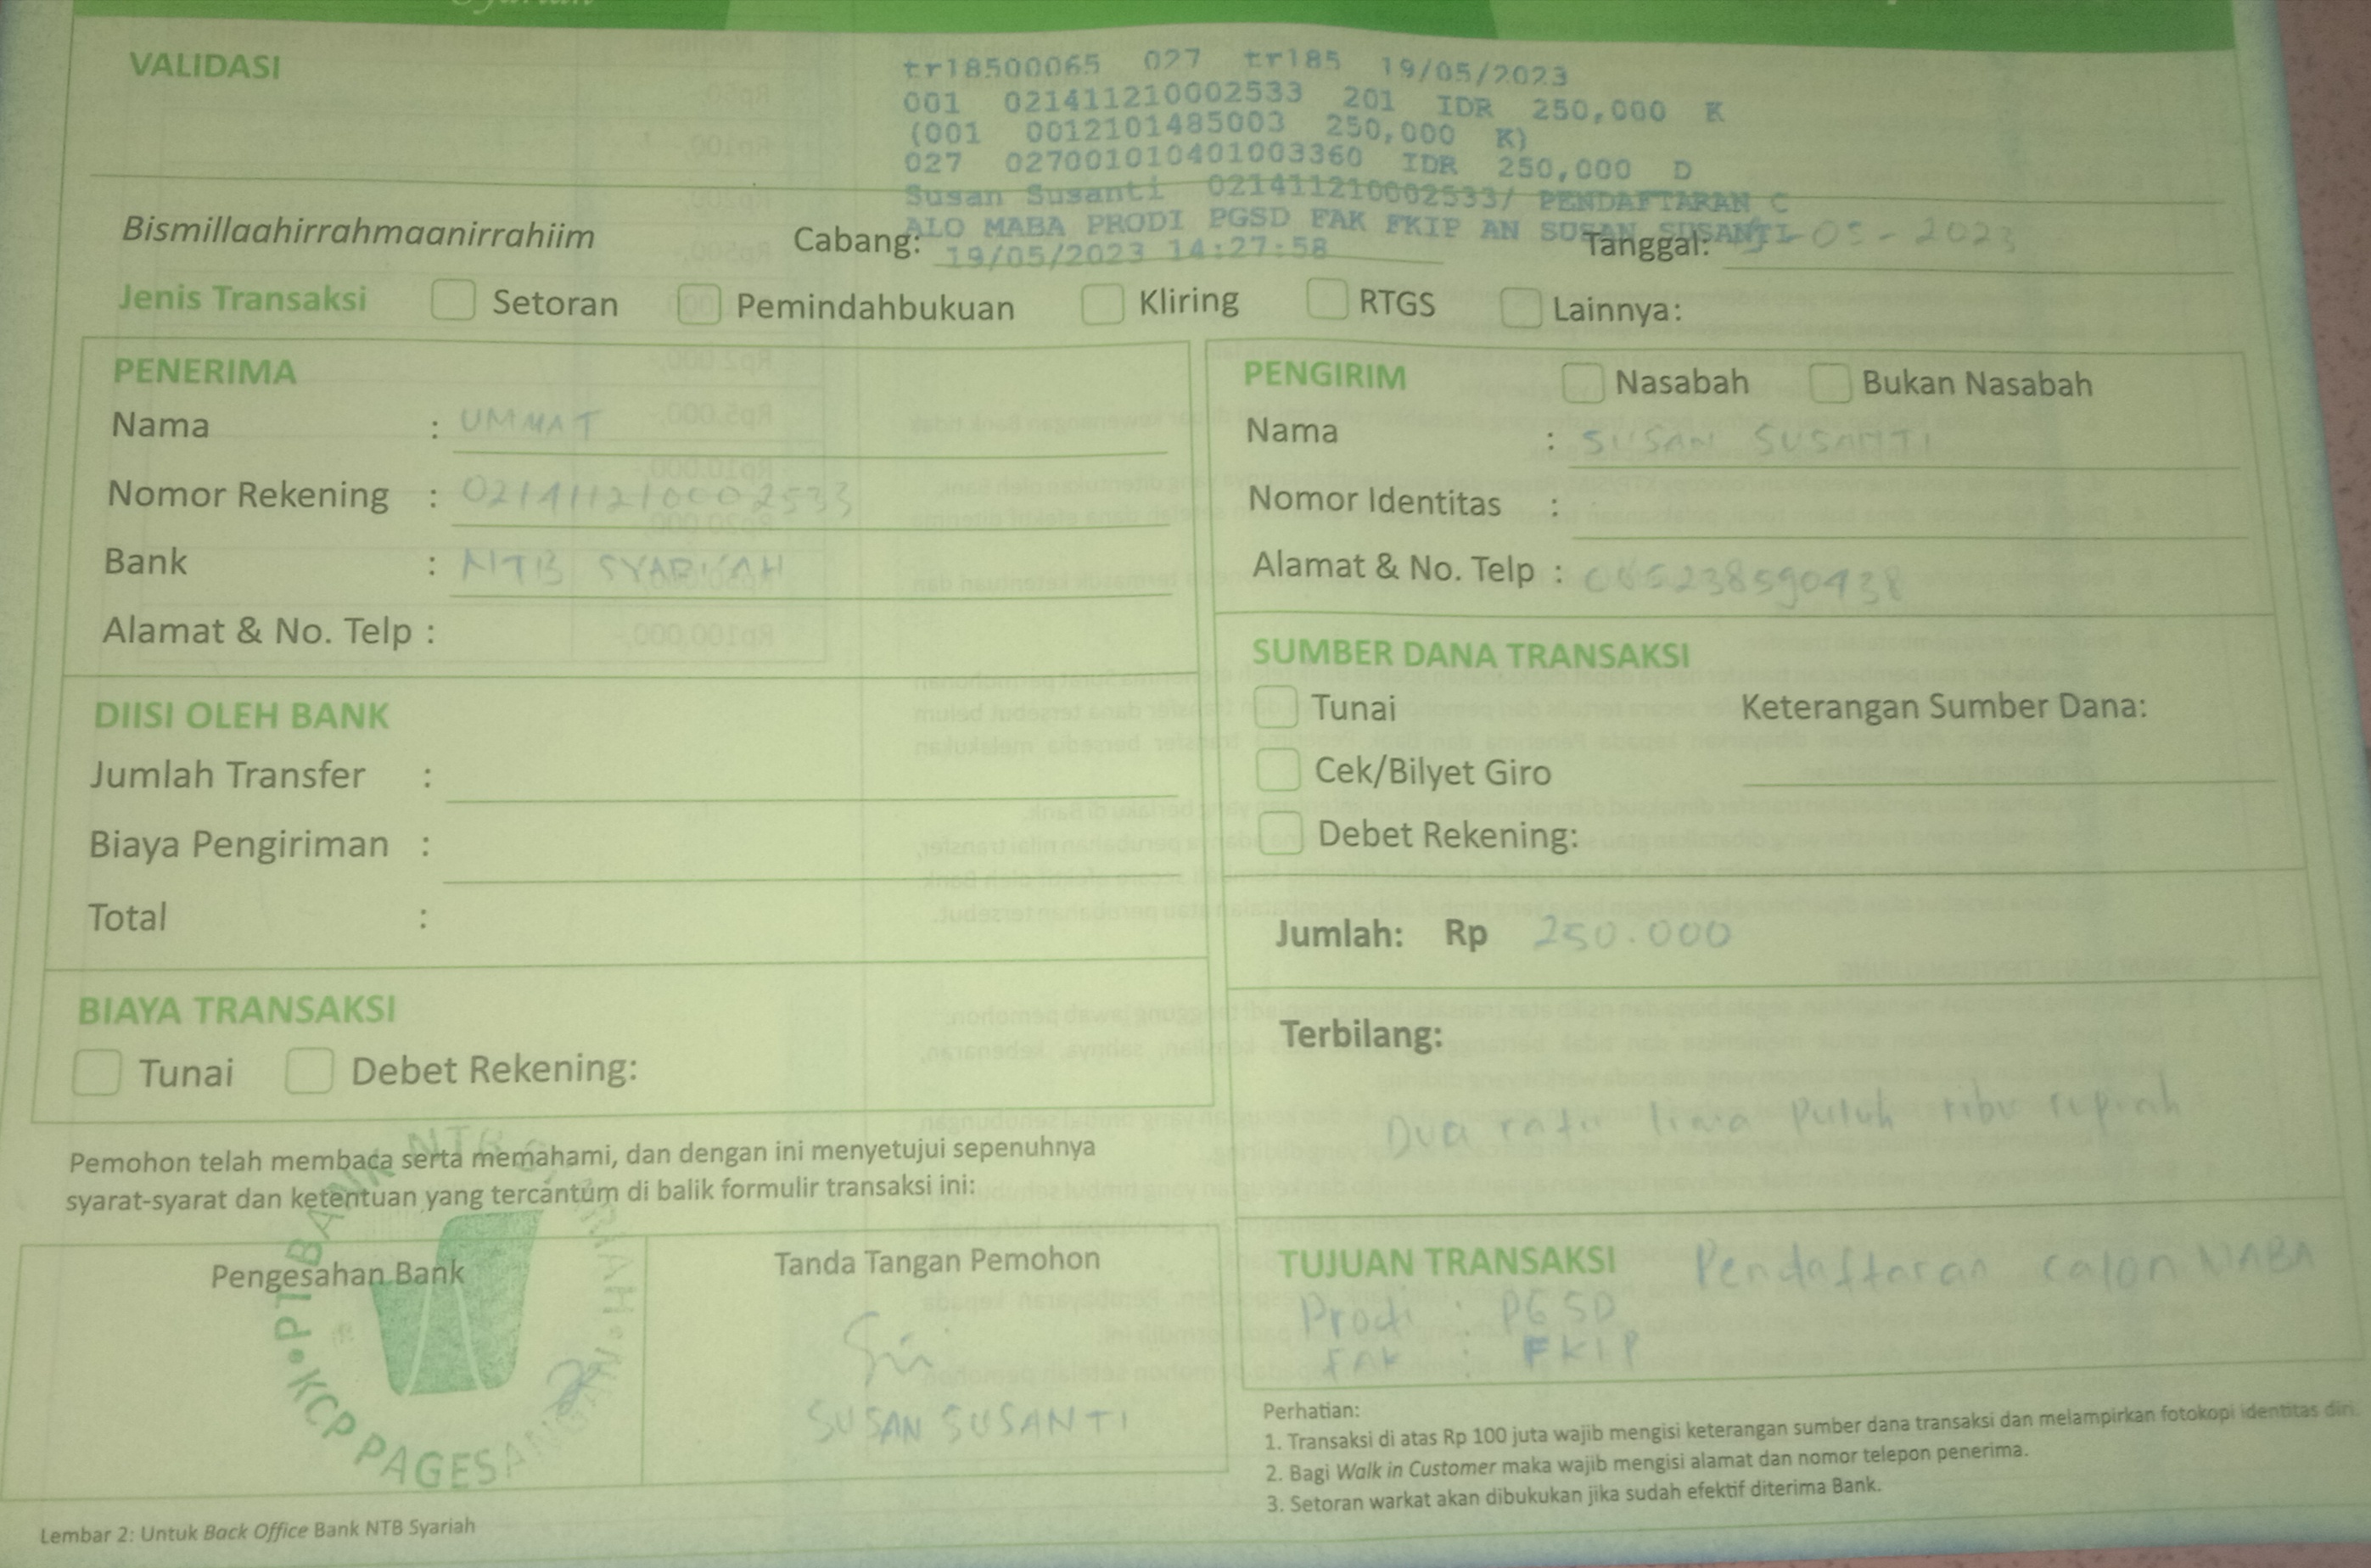 Syariah
VALIDASI
tr18500065 027 tr185 19/05/2023
001 021411210002533 201 IDR 250,000 K
(001 0012101485003 250,000 K)
027 027001010401003360 IDR 250,000 D
Susan Susanti 021411210002533/ PENDAFTARAN C
ALO MABA PRODI PGSD FAK FKIP AN SUSAN SUSANTI
19/05/2023 14:27:58
Bismillaahirrahmaanirrahiim Cabang: Tanggal: 19-05-2023
Jenis Transaksi Setoran Pemindahbukuan Kliring RTGS Lainnya:
PENERIMA
Nama : UMMAT
Nomor Rekening : 021411210002533
Bank : NTB SYARIAH
Alamat & No. Telp :
PENGIRIM Nasabah Bukan Nasabah
Nama : SUSAN SUSANTI
Nomor Identitas :
Alamat & No. Telp : 085238590438
DIISI OLEH BANK
Jumlah Transfer :
Biaya Pengiriman :
Total :
SUMBER DANA TRANSAKSI
Tunai Keterangan Sumber Dana:
Cek/Bilyet Giro
Debet Rekening:
Jumlah: Rp 250.000
BIAYA TRANSAKSI
Tunai Debet Rekening:
Terbilang:
Dua ratu lima puluh ribu rupiah
Pemohon telah membaca serta memahami, dan dengan ini menyetujui sepenuhnya
syarat-syarat dan ketentuan yang tercantum di balik formulir transaksi ini:
Pengesahan Bank
PT BANK NTB SYARIAH
KCP PAGESANGAN
Tanda Tangan Pemohon
SUSAN SUSANTI
TUJUAN TRANSAKSI Pendaftaran calon MABA
Prodi : PGSD
FAK : FKIP
Perhatian:
1. Transaksi di atas Rp 100 juta wajib mengisi keterangan sumber dana transaksi dan melampirkan fotokopi identitas diri.
2. Bagi Walk in Customer maka wajib mengisi alamat dan nomor telepon penerima.
3. Setoran warkat akan dibukukan jika sudah efektif diterima Bank.
Lembar 2: Untuk Back Office Bank NTB Syariah